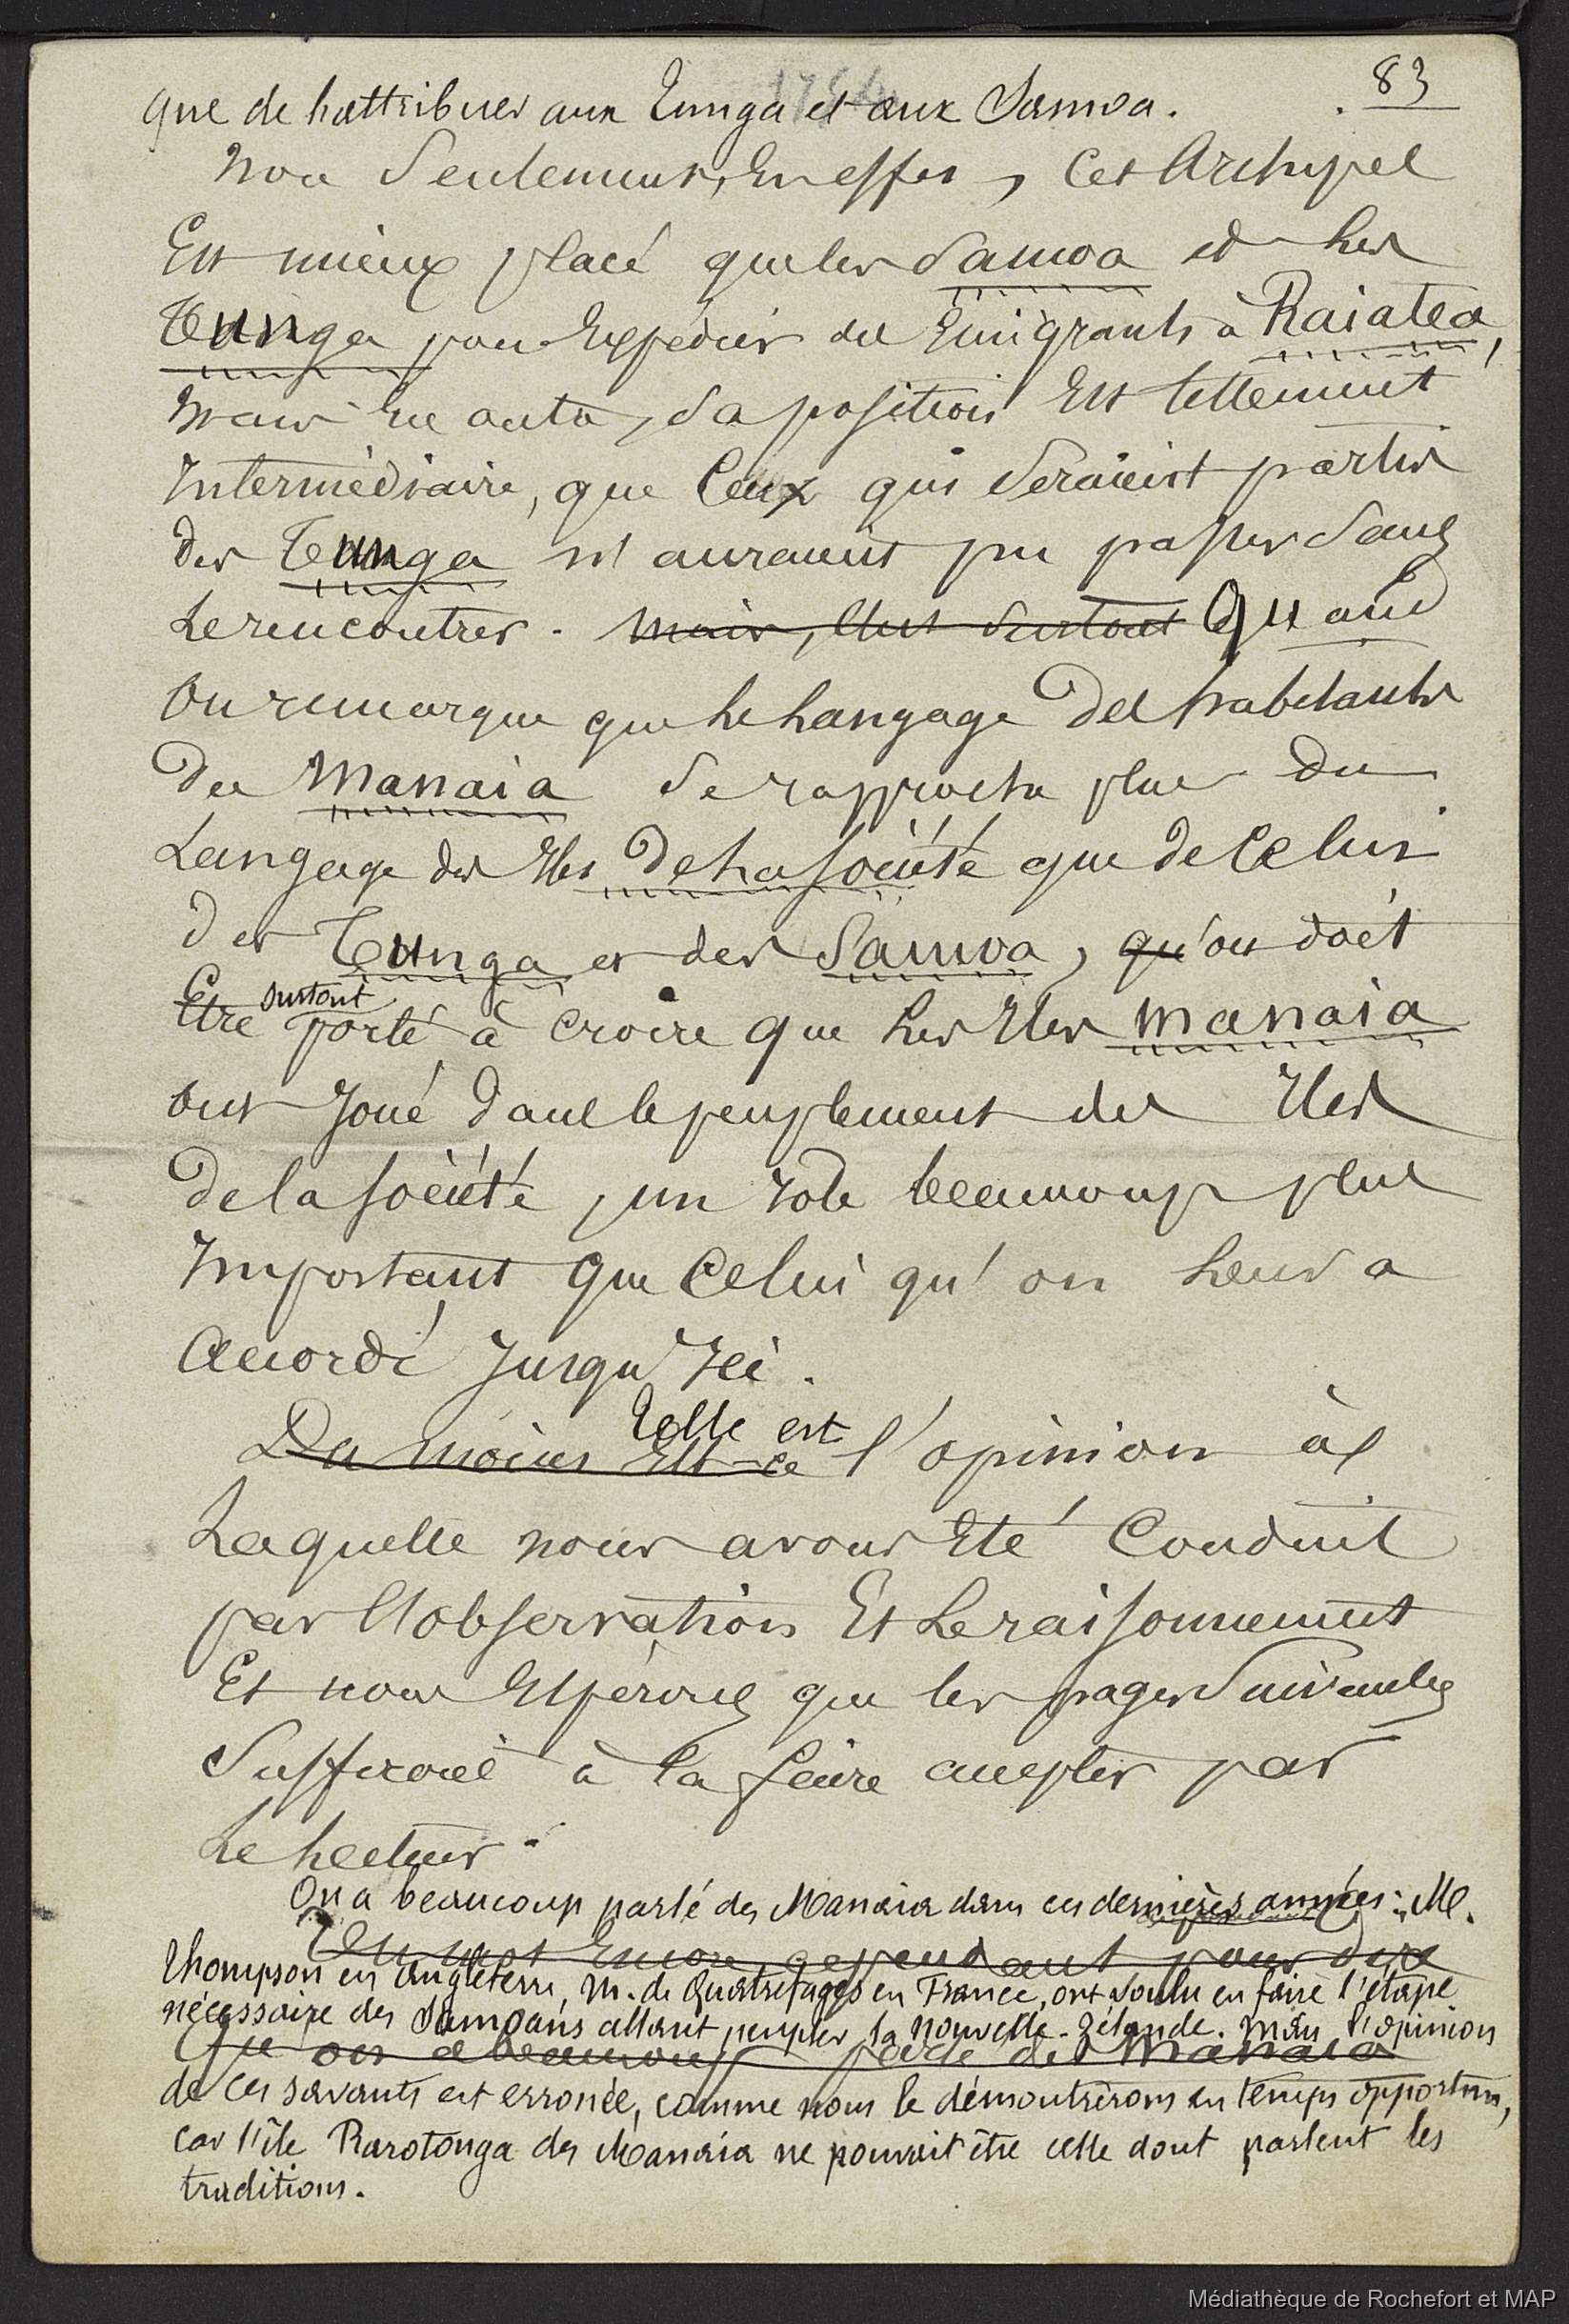 83
que de l'attribuer aux Tunga et aux Samoa.
Non Seulement, En effet, Cet Archipel
Est mieux placé que les Samoa et les
Tunga pour Expédier des Emigrants à Raiatea,
mais En outre, Sa position Est tellement
Intermédiaire, que Ceux qui Seraient partis
des Tunga n'auraient pu passer Sans
Le rencontrer. mais, C'est surtout Quand
On remarque que le Langage des habitants
des Manaia Se rapproche plus du
Langage des Iles De La Société que de Celui
des Tunga et des Samoa, qu'on doit
Etre surtout porté à Croire que Les Iles Manaia
ont Joué dans le peuplement des Iles
De la Société, un role beaucoup plus
Important que Celui qu'on Leur a
Accordé Jusqu'Ici.
Du moins Est-ce Telle est l'opinion à
Laquelle nous avons Eté Conduit
par l'observation Et Le raisonnement
Et nous Espérons que les pages Suivantes
Suffiront à la faire accepter par
Le Lecteur.
On a beaucoup parlé des Manaia dans ces dernières années : M.
Un mot Encore cependant pour dire
Thompson en Angleterre, M. de Quatrefages en France, ont voulu en faire l'étape
nécessaire des Samoans allant peupler la Nouvelle-Zélande. Mais l'opinion
Que on a beaucoup parlé des Manaia
de ces savants est erronée, comme nous le démontrerons en temps opportun,
car l'île Rarotonga des Manaia ne pouvait être celle dont parlent les
traditions.
Médiathèque de Rochefort et MAP